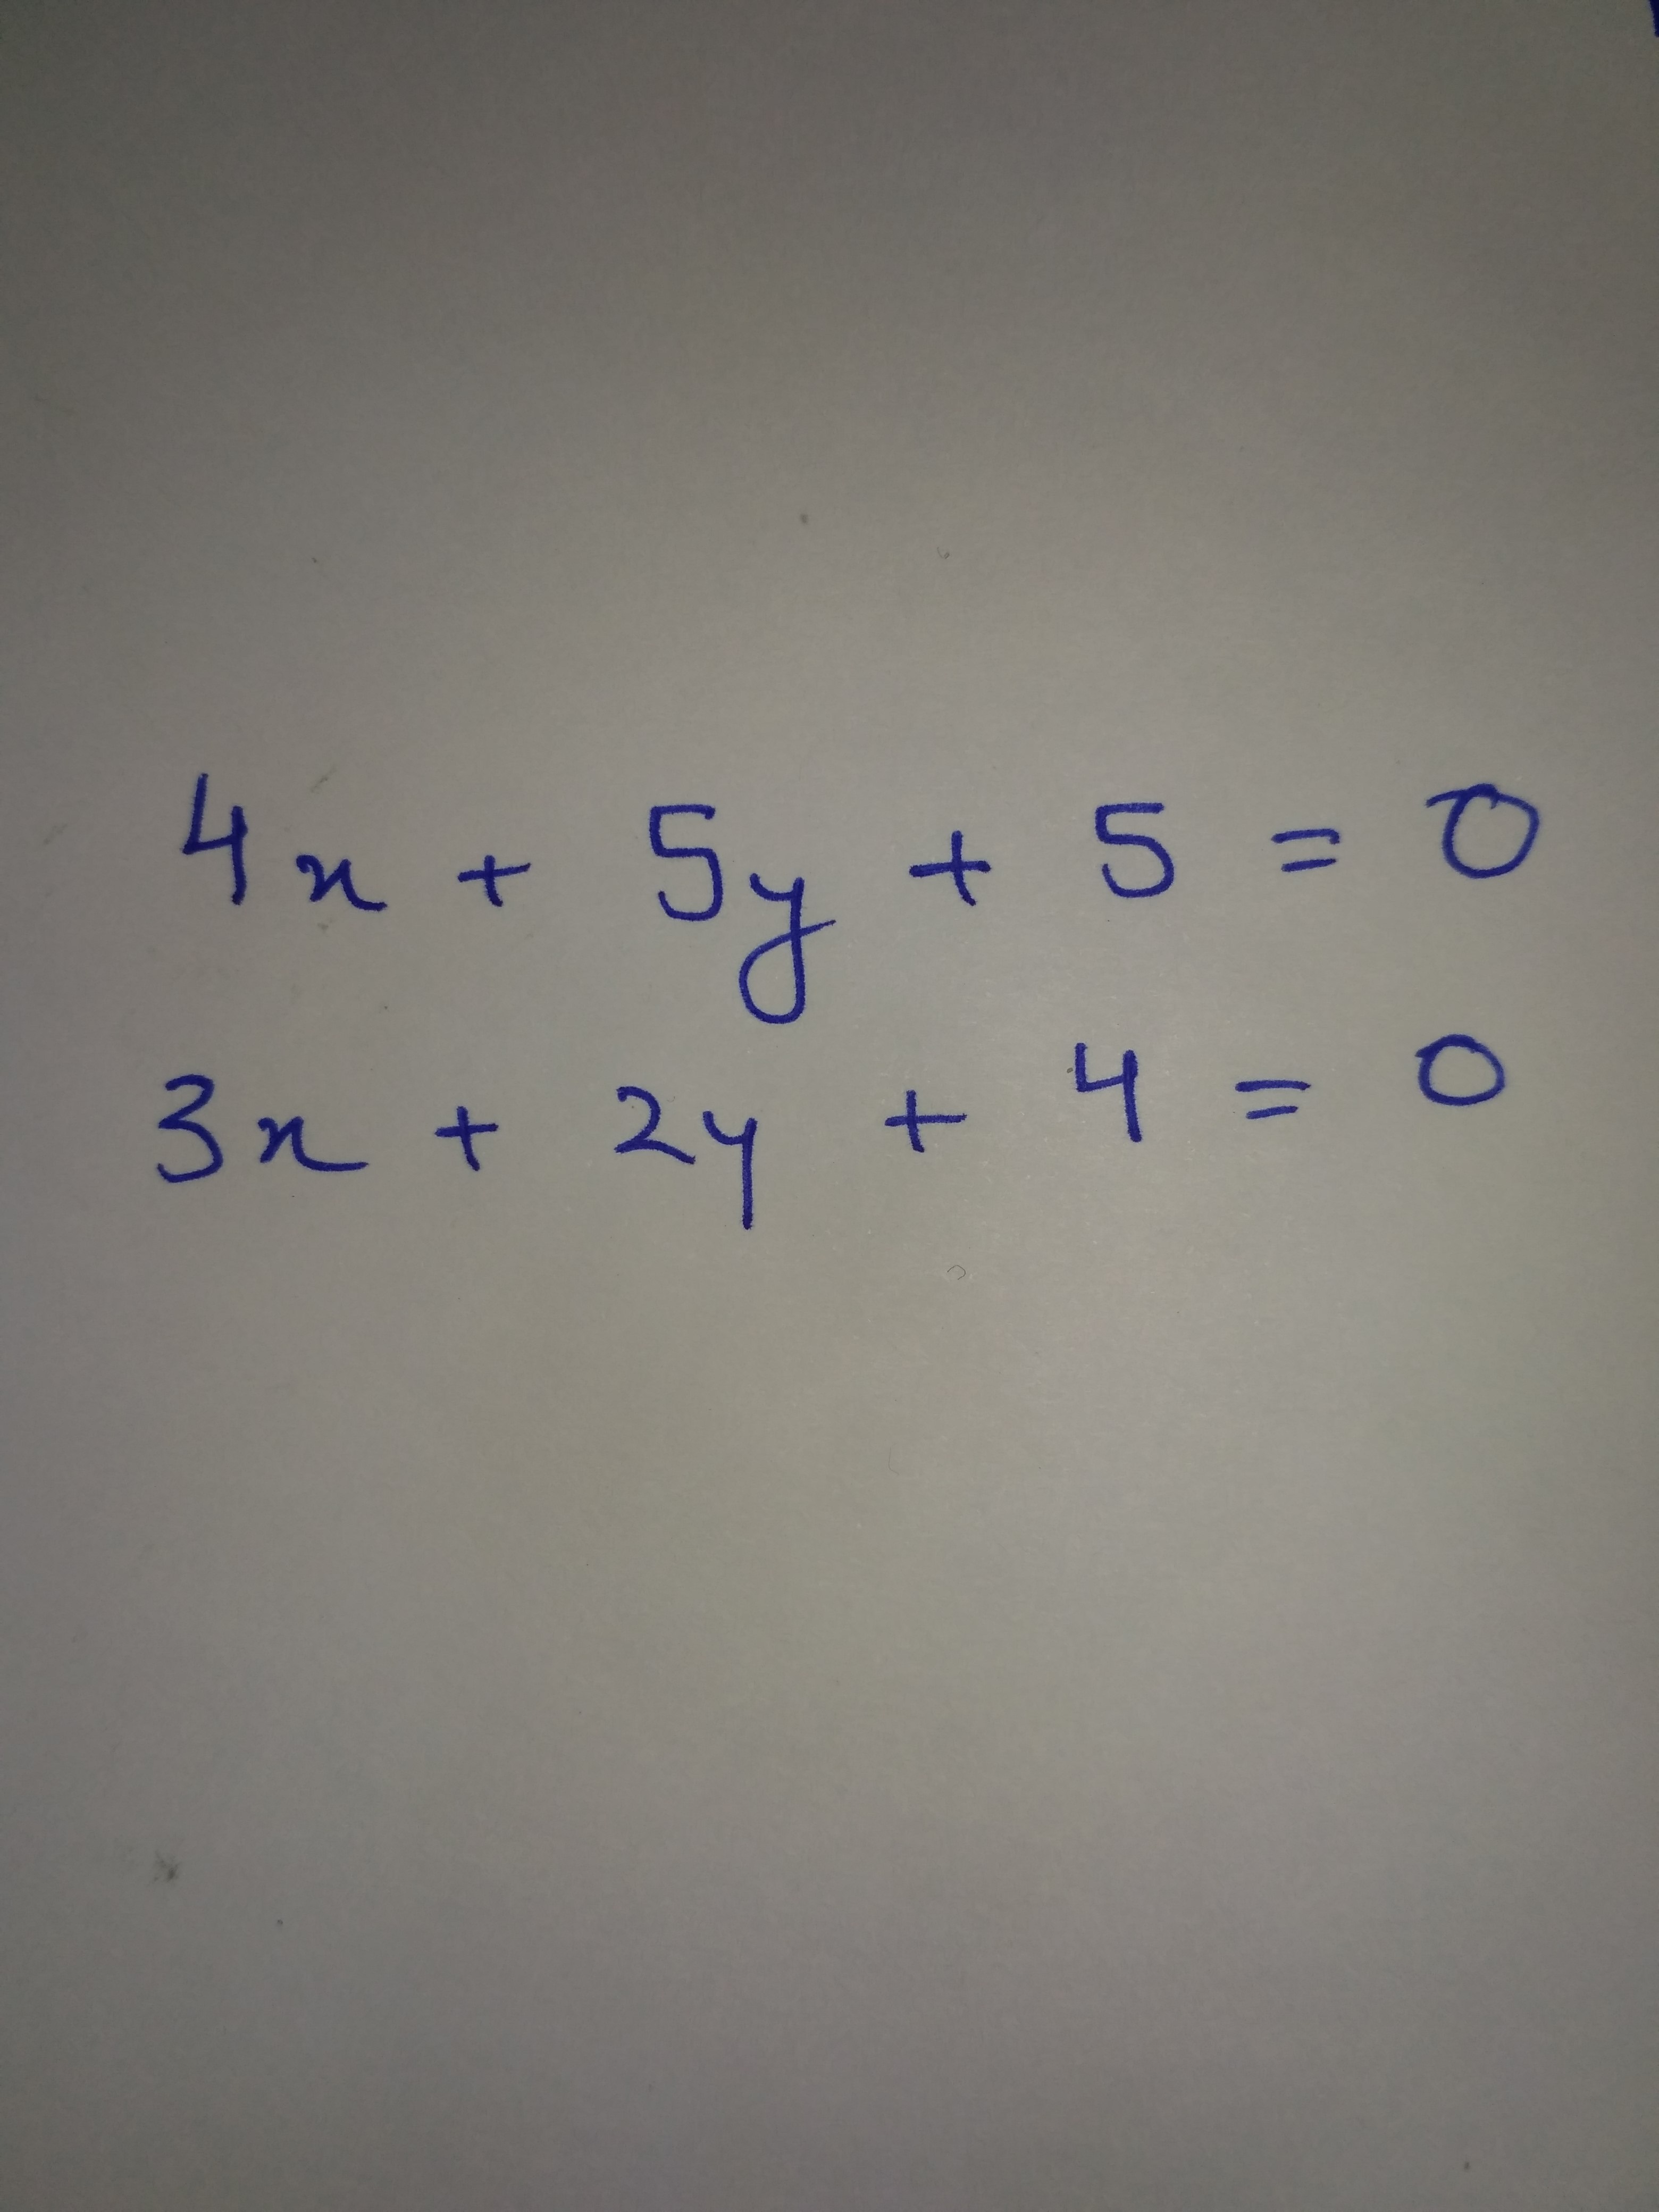 4x + 5y + 5 = 0
3x + 2y + 4 = 0